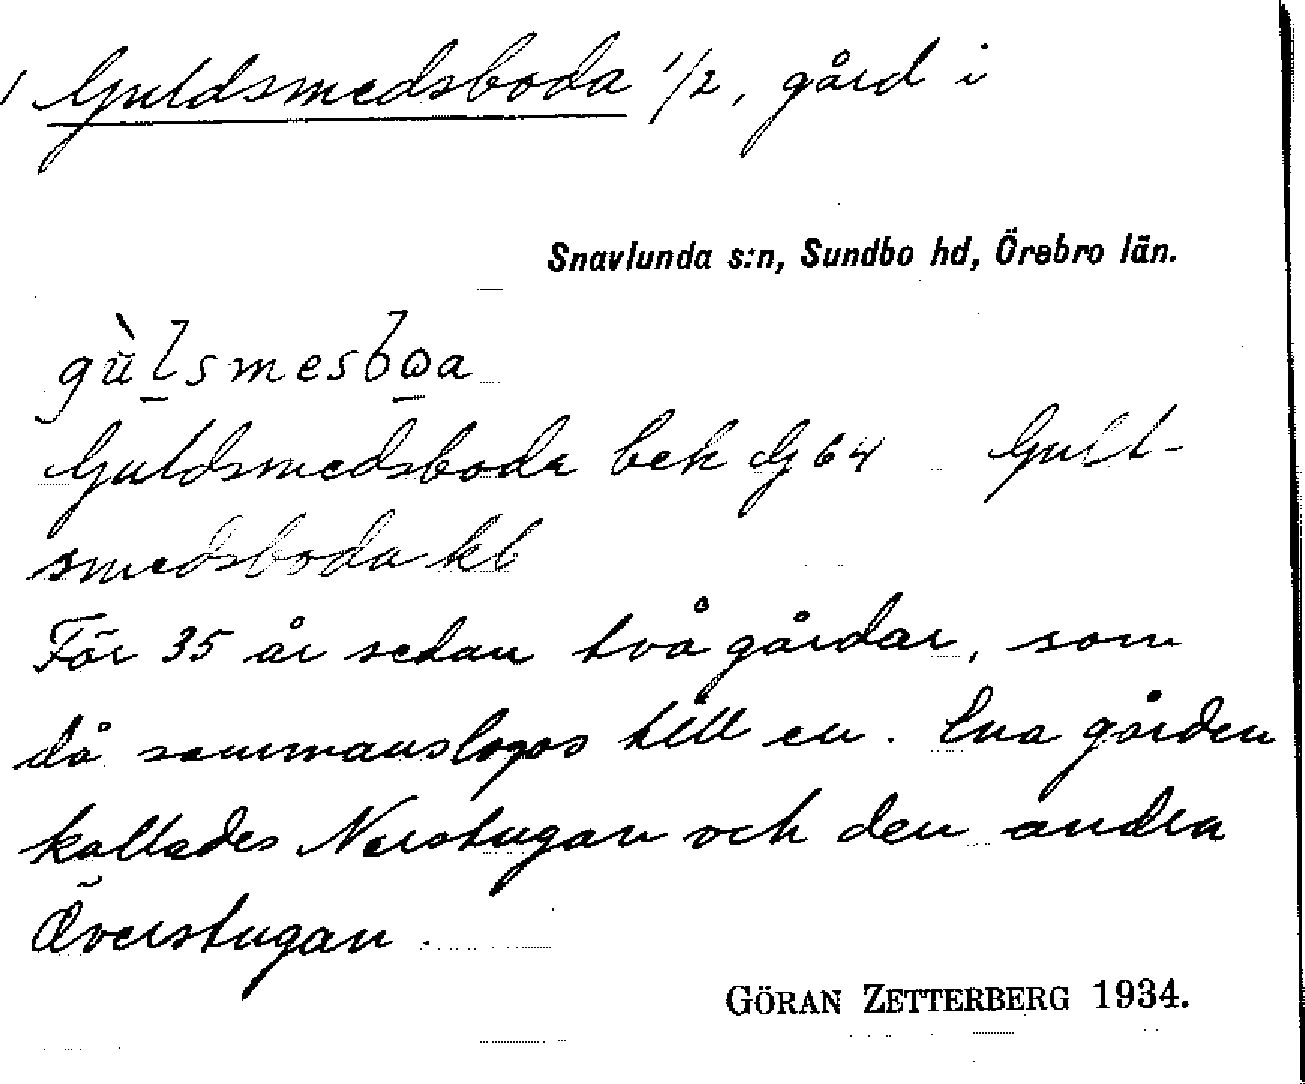 Guldsmedsboda 1/2, gård i
Snavlunda s:n, Sundbo hd, Örebro län.
gùlsmesbωa
Guldsmedsboda bek Gj 64 Guld-
smedsboda kb
För 35 år sedan två gårdar, som
då sammanslogos till en. Ena gården
kallades Nerstugan och den andra
Överstugan.
GÖRAN ZETTERBERG 1934.